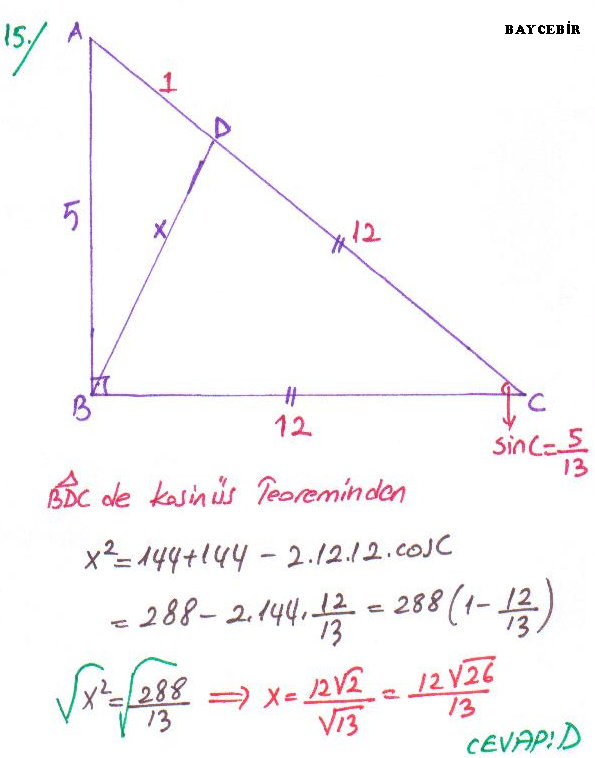 15./
BAYCEBİR
A
1
D
5
x
12
B
C
12
sinC=5/13
BDC de kosinüs Teoreminden
x²=144+144-2.12.12.cosC
=288-2.144.12/13=288(1-12/13)
√x²=√288/13 ⇒ x=12√2/√13=12√26/13
CEVAP:D